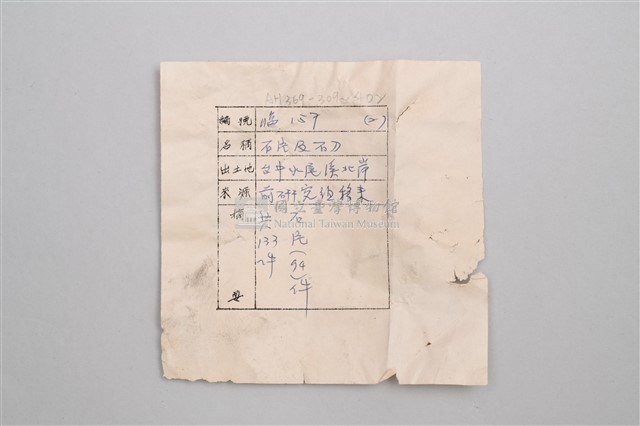 編號 臨157 (二)
名稱 石片及石刀
出土地 台中水尾溪北岸
來源 前研究組移來
摘要 石片(94)件
共133件
國立臺灣博物館
National Taiwan Museum